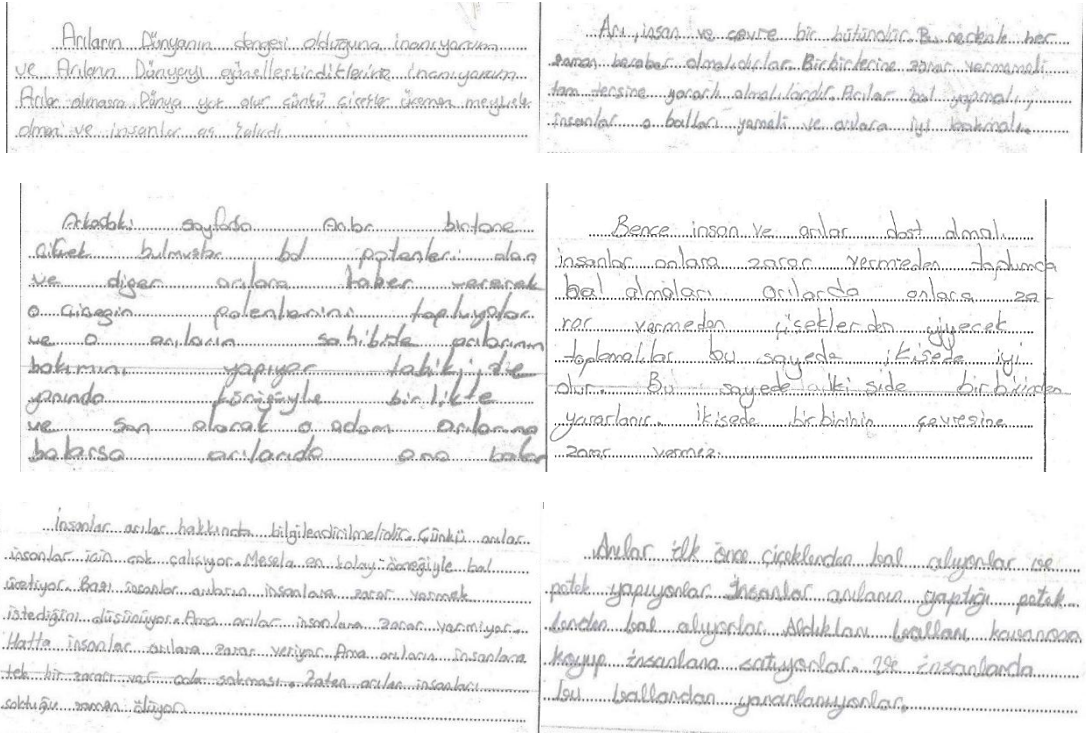 Arıların Dünyanın dengesi olduğuna inanıyorum
ve Arıların Dünyayı güzelleştirdiklerine inanıyorum
Arılar olmasa Dünya yok olur çünkü çiçekler
olmen ve insanlar aç kalırdı.
Arı, insan ve çevre bir bütündür. Bu nedenle her
zaman beraber olmalıdırlar. Birbirlerine zarar vermemeli
tam tersine yararlı olmalılardır. Arılar bal yapmalı,
insanlar o balları yemeli ve arılara iyi bakmalı.
Arkadaki sayfada Arılar birtane
çiçek bulmuşlar bol potenleri alan
ve diger arılara haber vererek
o çiçegin polenlerini topluyorlar
ve o arıların sahibite arılarının
bakımını yapıyor tabikijde
yanında köpüğüyle birlikte
ve son olarak o adam arılarına
bakarsa arılarda ona bakar
Bence insan ve arılar dost olmalı.
insanlar onlara zarar vermeden toplumca
bal almaları arılarda onlara za-
rar vermeden çiseklerden yiyecek
toplamalılar bu sayede ikisede iyi
olur. Bu sayede ikiside birbirinden
yararlanır. ikisede birbirinin çevresine
zarar vermez.
İnsanlar arılar hakkında bilgilendirilmelidir. Çünkü arılar
insanlar için çok çalışıyor. Mesela en kolay örneğiyle bal
üretiyor. Bazı insanlar arıların insanlara zarar vermek
istediğini düşünüyor. Ama arılar insanlara zarar vermiyor.
Hatta insanlar arılara zarar veriyor. Ama arıların insanlara
tek bir zararı var oda sokması. Zaten arılar insanları
soktuğu zaman ölüyor
Arılar ilk önce çiçeklerden bal alıyorlar ve
petek yapıyorlar. İnsanlar arıların yaptığı petek
lerden bal alıyorlar. Aldıkları balları kavanoza
koyup insanlara satıyorlar. Ve insanlarda
bu ballardan yararlanıyorlar.